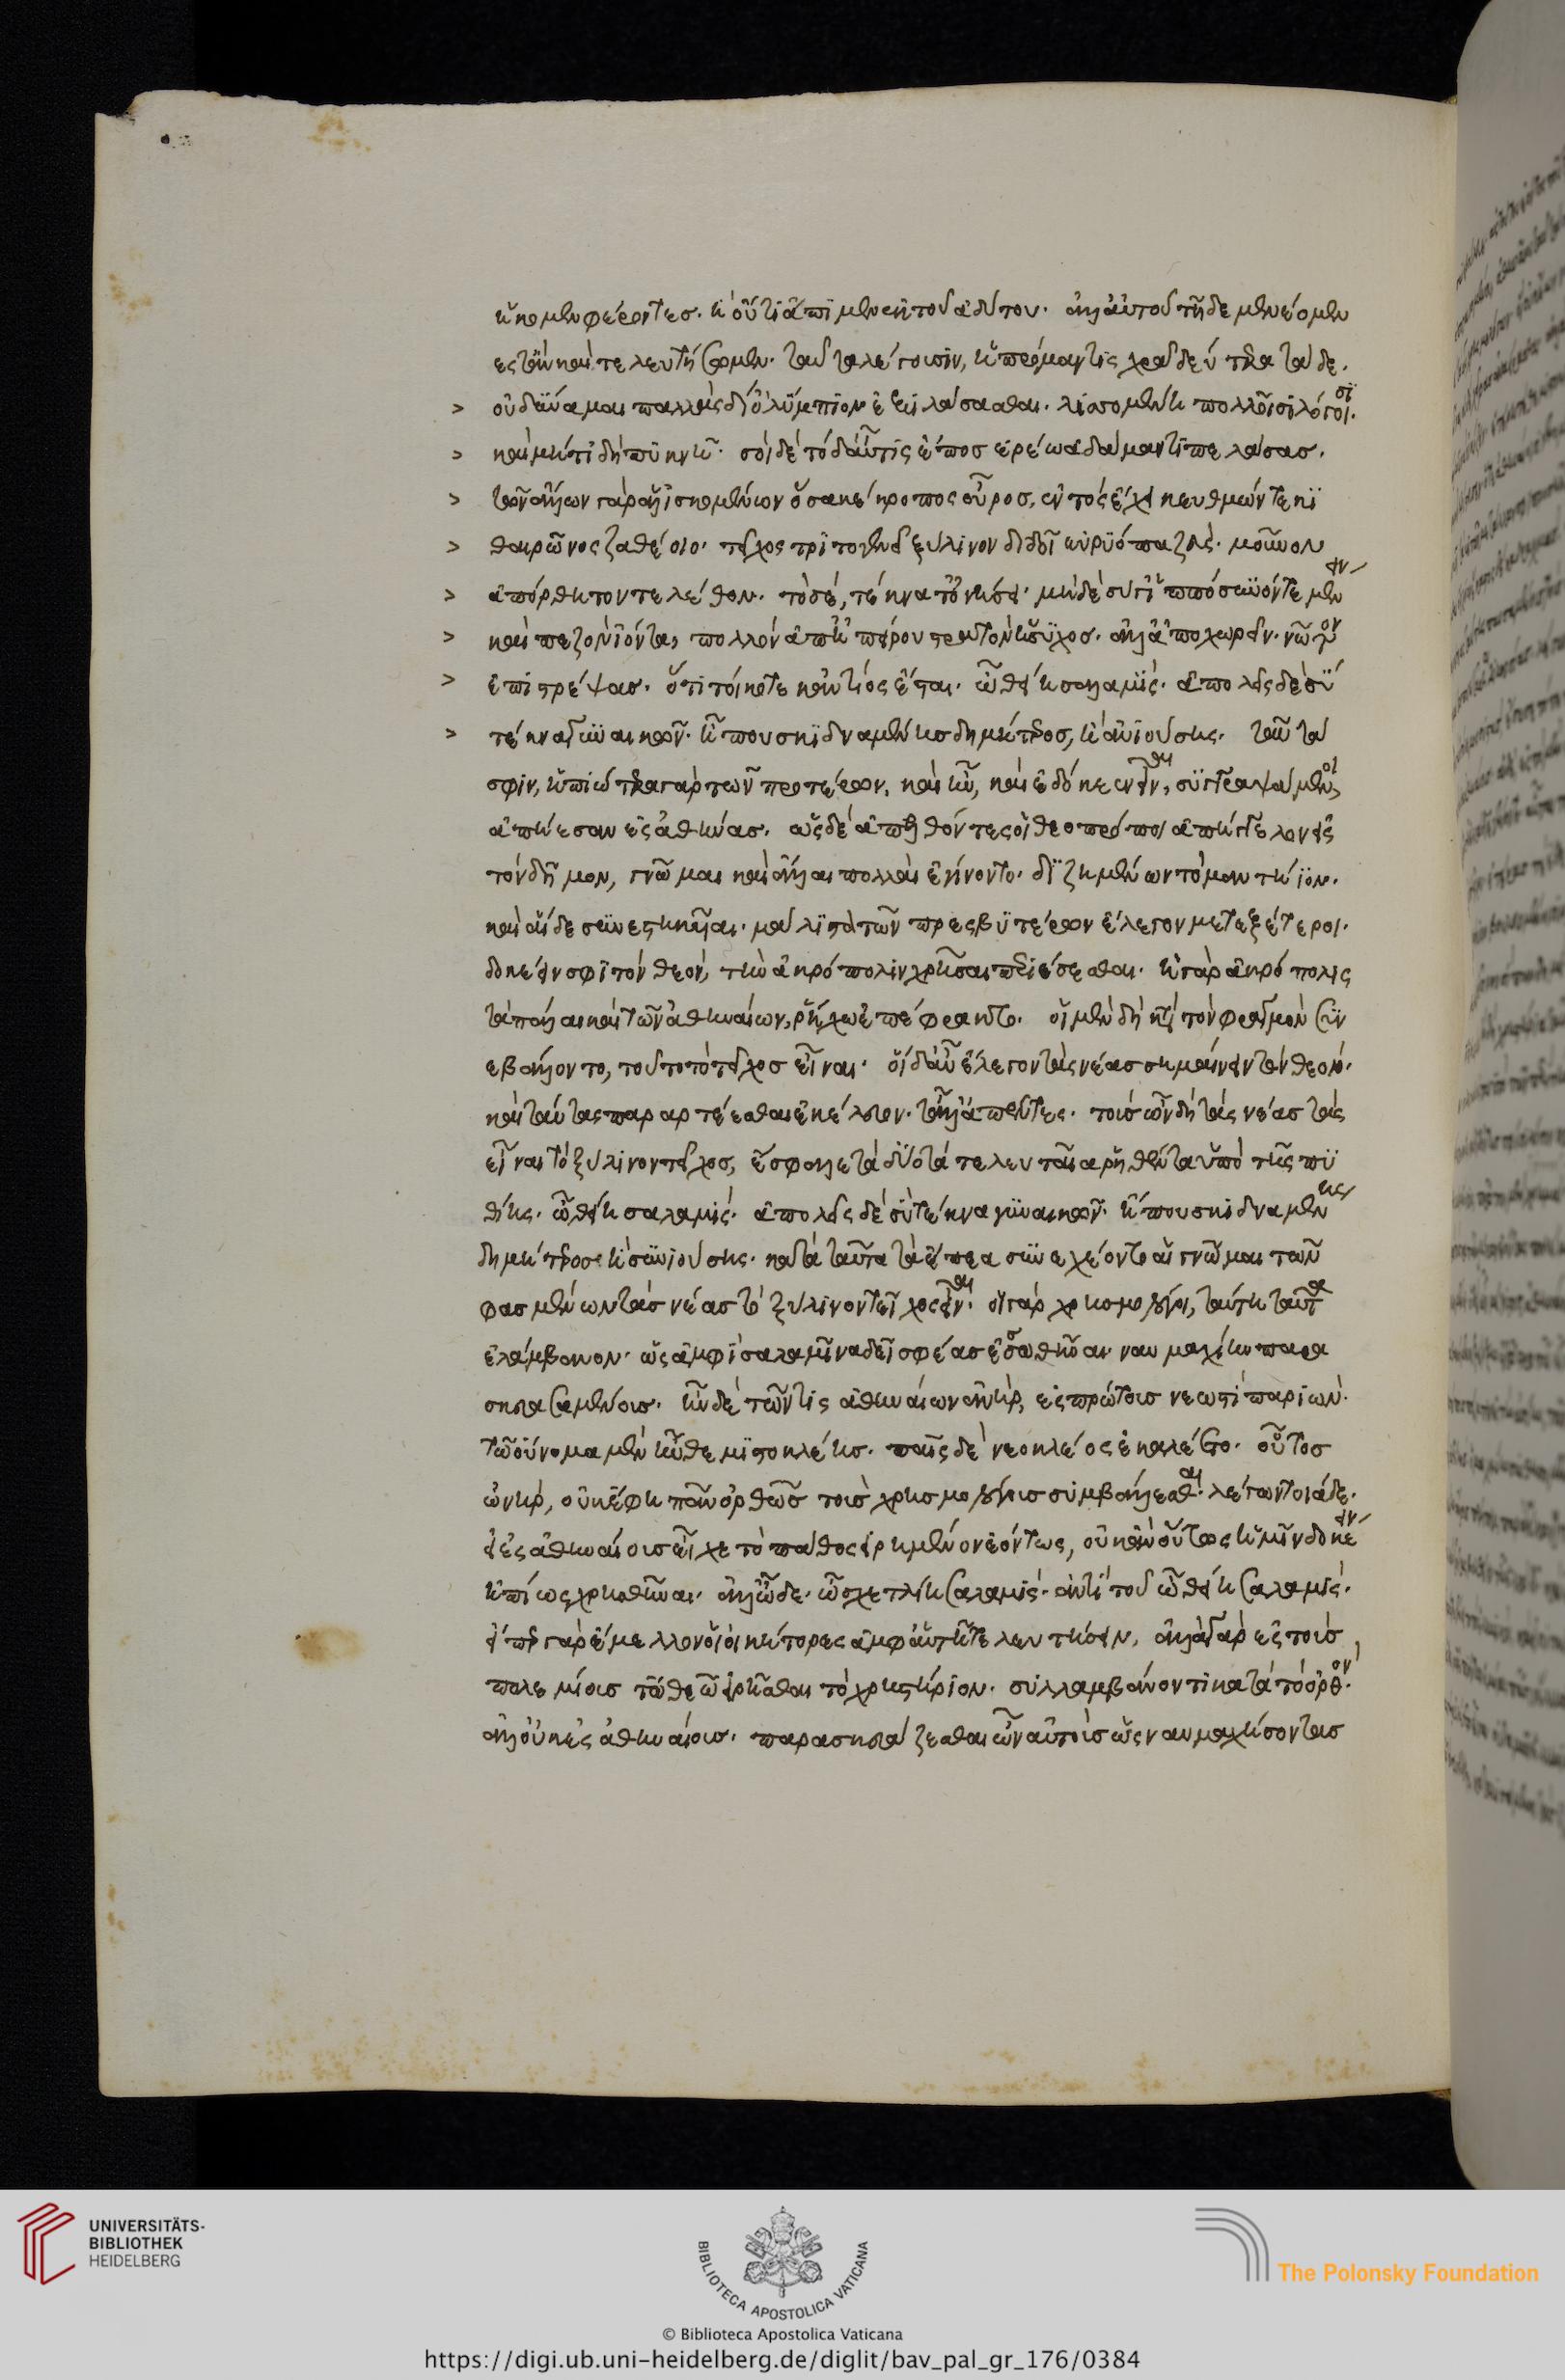 ἥκομεν φέροντες. ἢ οὔτι ἄπιμεν ἐκ τοῦ ἀδύτου. ἀλλ' αὐτοῦ τῇδε μενέομεν
ἔστ' ἂν καὶ τελευτήσωμεν. ταῦτα λέγουσιν, ἡ πρόμαντις χρᾷ δεύτερα τάδε.
> οὐ δύναμαι παλλὰς δί' ὀλύμπιον ἐξιλάσασθαι. λισσομένη πολλοῖσι λόγοισι.
> καὶ μήτιδι πυκνῇ. σοὶ δὲ τόδ' αὖτις ἔπος ἐρέω ἀδάμαντι πελάσας.
> τῶν ἄλλων γὰρ ἁλισκομένων ὅσα κέκροπος οὖρος, ἐντὸς ἔχει κευθμών τε κι
> θαιρῶνος ζαθέοιο. τεῖχος τριτογενεῖ ξύλινον διδοῖ εὐρύοπα ζεὺς. μοῦνον
> ἀπόρθητον τελέθειν. τὸ σὲ, τέκνα τ' ὀνήσει. μηδὲ σύ γ' ἱπποσύνην τε μένειν
> καὶ πεζὸν ἰόντα, πολλὸν ἀπ' ἠπείρου στρατὸν ἥσυχος. ἀλλ' ἀποχωρεῖν. νῶτον
> ἐπιστρέψας. ἔτι τοί κοτε κἀντίος ἔσται. ὦ θείη σαλαμὶς. ἀπολεῖς δὲ σὺ
> τέκνα γυναικῶν. ἤ που σκιδναμένης δημήτερος, ἢ συνιούσης. ταῦτά
σφιν, ἠπιώτερα γὰρ τῶν προτέρων, καὶ ἦν, καὶ ἐδόκεε εἶναι, συγγραψάμενοι,
ἀπῄεσαν ἐς ἀθήνας. ὡς δὲ ἀπελθόντες οἱ θεοπρόποι ἀπήγγελλον ἐς
τὸν δῆμον, γνῶμαι καὶ ἄλλαι πολλαὶ ἐγίνοντο. διζημένων τὸ μαντήϊον.
καὶ αἵδε συνεστηκυῖαι. μάλιστα τῶν πρεσβυτέρων ἔλεγον μετεξέτεροι.
δοκέειν σφι τὸν θεὸν, τὴν ἀκρόπολιν χρῆσαι περιέσεσθαι. ἡ γὰρ ἀκρόπολις
τὸ πάλαι καὶ τῶν ἀθηναίων, ῥηχῷ ἐπέφρακτο. οἱ μὲν δὴ κατὰ τὸν φραγμὸν συν
εβάλλοντο, τοῦτο τὸ τεῖχος εἶναι. οἱ δ' αὖ ἔλεγον τὰς νέας σημαίνειν τὸν θεόν.
καὶ ταύτας παραρτέεσθαι ἐκέλευον. τἆλλα ἀπέντες. τοὺς ὦν δὴ τὰς νέας τὰς
εἶναι τὸ ξύλινον τεῖχος, ἔσφαλλε τὰ δύο τὰ τελευταῖα ῥηθέντα ὑπὸ τῆς πυ
θίης. ὦ θείη σαλαμὶς. ἀπολεῖς δὲ σὺ τέκνα γυναικῶν. ἤ που σκιδναμένης
δημήτερος ἢ συνιούσης. κατὰ ταῦτα τὰ ἔπεα συνεχέοντο αἱ γνῶμαι τῶν
φαμένων τὰς νέας τὸ ξύλινον τεῖχος εἶναι. οἱ γὰρ χρησμολόγοι, ταύτη ταῦτα
ἐλάμβανον. ὡς ἀμφὶ σαλαμῖνα δεῖ σφέας ἑσσωθῆναι ναυμαχίην παρα
σκευασαμένους. ἦν δὲ τῶν τις ἀθηναίων ἀνὴρ, ἐς πρώτους νεωστὶ παριὼν.
τῷ οὔνομα μὲν ἦν θεμιστοκλέης. παῖς δὲ νεοκλέος ἐκαλέετο. οὗτος
ὡνὴρ, οὐκ ἔφη πᾶν ὀρθῶς τοὺς χρησμολόγους συμβάλλεσθαι. λέγων τοιάδε.
εἰ ἐς ἀθηναίους εἶχε τὸ πάθος εἰρημένον ἐόντως, οὐκ ἂν οὕτως ἥ μιν δοκέειν
ἠπίως χρησθῆναι. ἀλλ' ὧδε. ὦ σχετλίη σαλαμὶς. ἀντὶ τοῦ ὦ θείη σαλαμὶς.
εἴπερ γὰρ ἔμελλον οἱ οἰκήτορες ἀμφ' αὐτῇ τελευτήσειν, ἀλλὰ γὰρ ἐς τοὺς
πολεμίους τῷ θεῷ εἰρῆσθαι τὸ χρηστήριον. συλλαμβάνοντι κατὰ τὸ ὀρθὸν.
ἀλλ' οὐκ ἐς ἀθηναίους. παρασκευάζεσθαι ὦν αὐτοὺς ὡς ναυμαχήσοντας
UNIVERSITÄTS-
BIBLIOTHEK
HEIDELBERG
BIBLIOTECA APOSTOLICA VATICANA
The Polonsky Foundation
© Biblioteca Apostolica Vaticana
https://digi.ub.uni-heidelberg.de/diglit/bav_pal_gr_176/0384